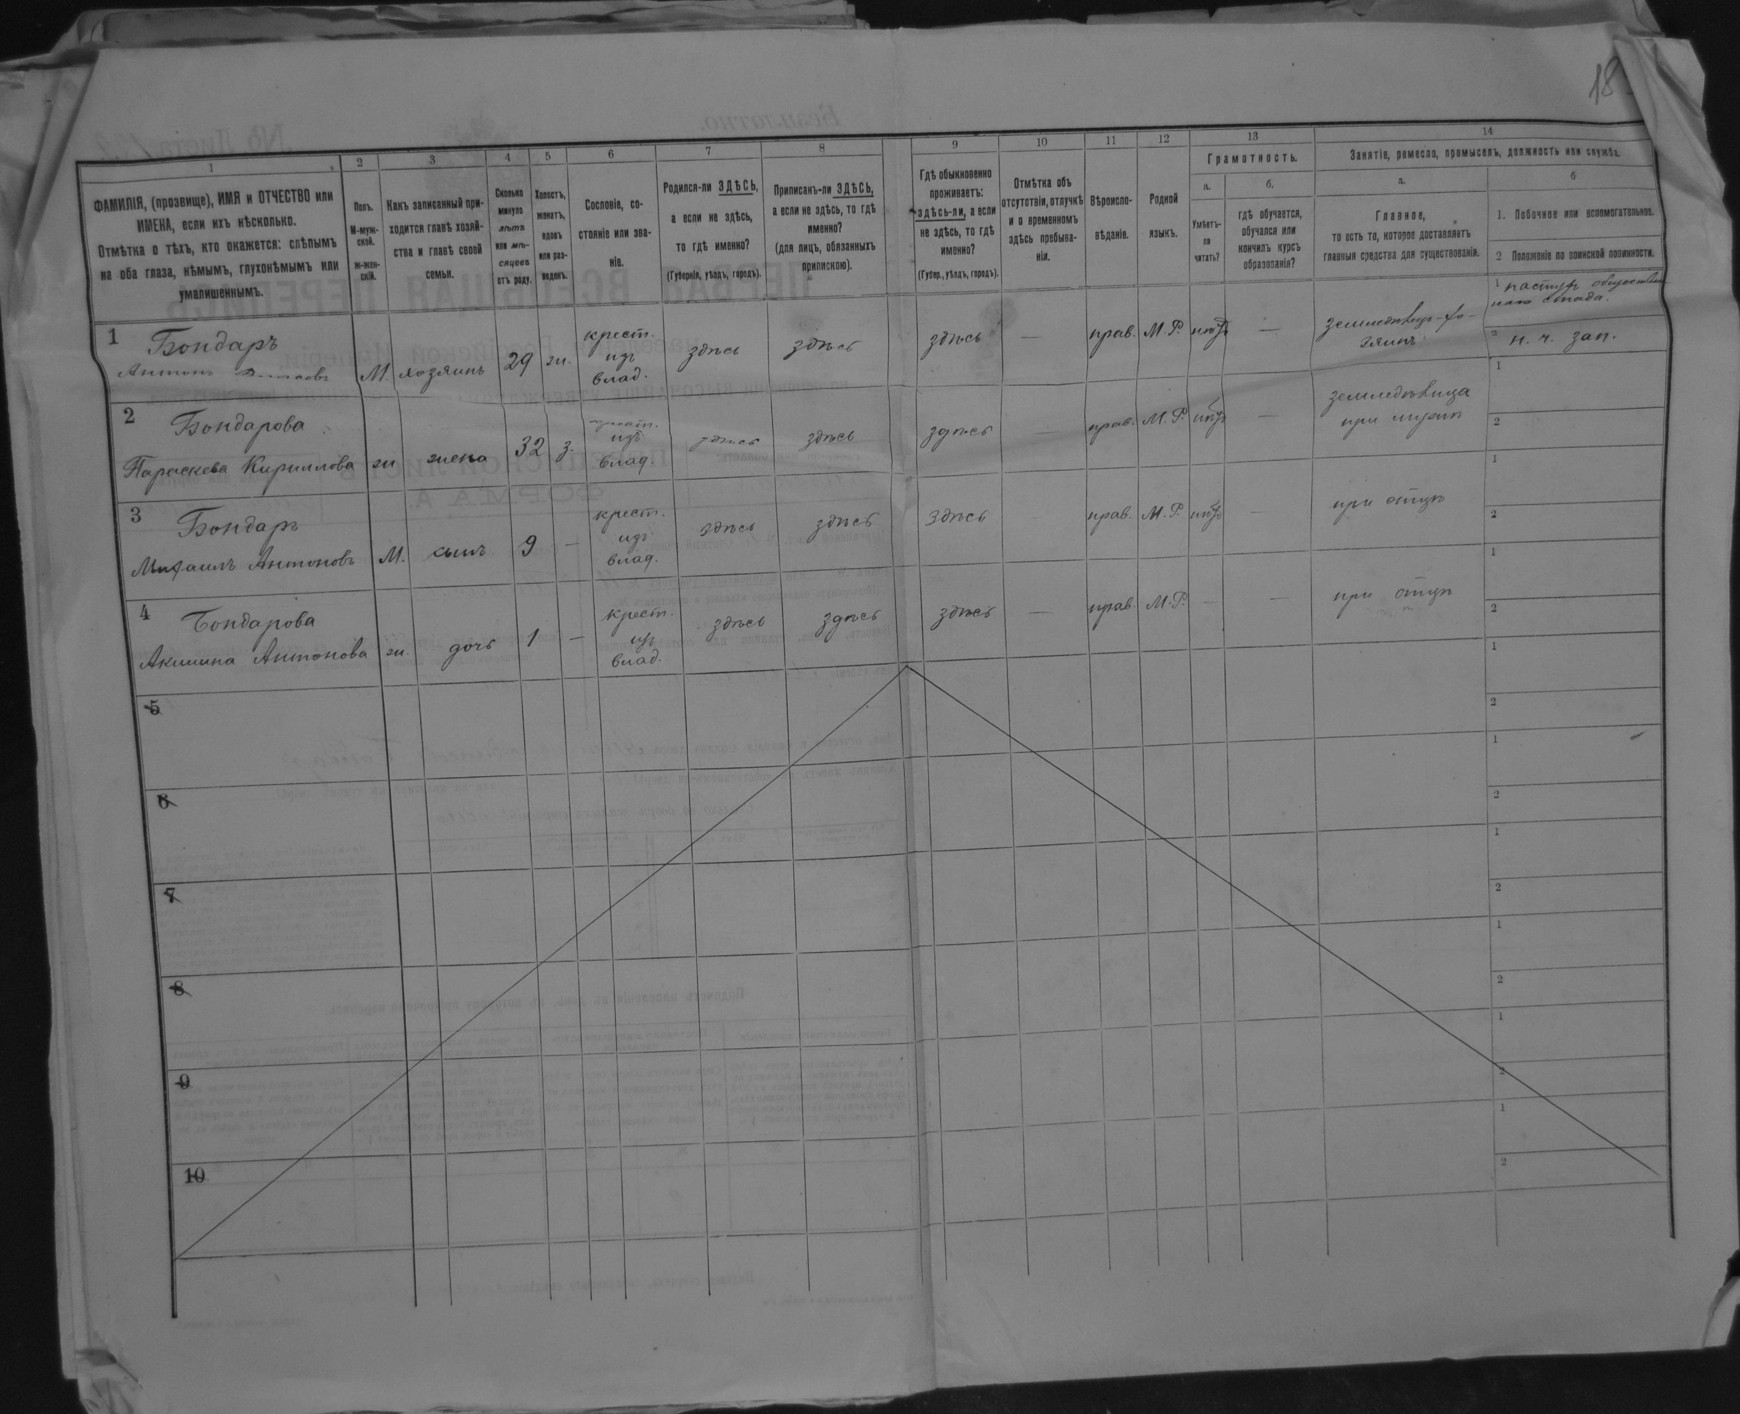 18
1 2 3 4 5 6 7 8 9 10 11 12 13 14
ФАМИЛІЯ, (прозвище), ИМЯ и ОТЧЕСТВО или
ИМЕНА, если ихъ нѣсколько.
Отмѣтка о тѣхъ, кто окажется: слѣпымъ
на оба глаза, нѣмымъ, глухонѣмымъ или
умалишеннымъ.
Полъ.
М-муж-
ской.
ж-жен-
скій.
Какъ записанный при-
ходится главѣ хозяй-
ства и главѣ своей
семьи.
Сколько
минуло
лѣтъ
или мѣ-
сяцевъ
отъ роду.
Холостъ,
женатъ,
вдовъ
или раз-
веденъ.
Сословіе, со-
стояніе или зва-
ніе.
Родился-ли ЗДѢСЬ,
а если не здѣсь,
то гдѣ именно?
(Губернія, уѣздъ, городъ).
Приписанъ-ли ЗДѢСЬ,
а если не здѣсь, то гдѣ
именно?
(для лицъ, обязанныхъ
припискою).
Гдѣ обыкновенно
проживаетъ:
здѣсь-ли, а если
не здѣсь, то гдѣ
именно?
(Губер., уѣздъ, городъ).
Отмѣтка объ
отсутствіи, отлучкѣ
и о временномъ
здѣсь пребыва-
ніи.
Вѣроиспо-
вѣданіе.
Родной
языкъ.
Грамотность.
а. б.
Умѣетъ-
ли
читать?
гдѣ обучается,
обучался или
кончилъ курсъ
образованія?
Занятіе, ремесло, промыселъ, должность или служба.
а. б
Главное,
то есть то, которое доставляетъ
главныя средства для существованія.
1. Побочное или вспомогательное.
2 Положеніе по воинской повинности.
1 Бондаръ
Антонъ
М. хозяинъ 29 ж.
крест.
изъ
влад.
здѣсь здѣсь здѣсь — прав. М.Р. нѣтъ —
земледѣлецъ-хо-
зяинъ
1 пастухъ обществен
наго стада.
2 н. ч. зап.
2 Бондарова
Параскева Кириллова ж жена 32 з.
крест.
изъ
влад.
здѣсь здѣсь здѣсь — прав. М.Р. нѣтъ —
земледѣлица
при мужѣ
1
2
3 Бондарь
Михаилъ Антоновъ М. сынъ 9 —
крест.
изъ
влад.
здѣсь здѣсь здѣсь прав. М.Р. нѣтъ —
при отцѣ
1
2
4 Бондарова
Акилина Антонова ж. дочь 1 —
крест.
изъ
влад.
здѣсь здѣсь здѣсь — прав. М.Р. — —
при отцѣ
1
2
5
1
2
6
1
2
7
1
2
8
1
2
9
1
2
10
1
2